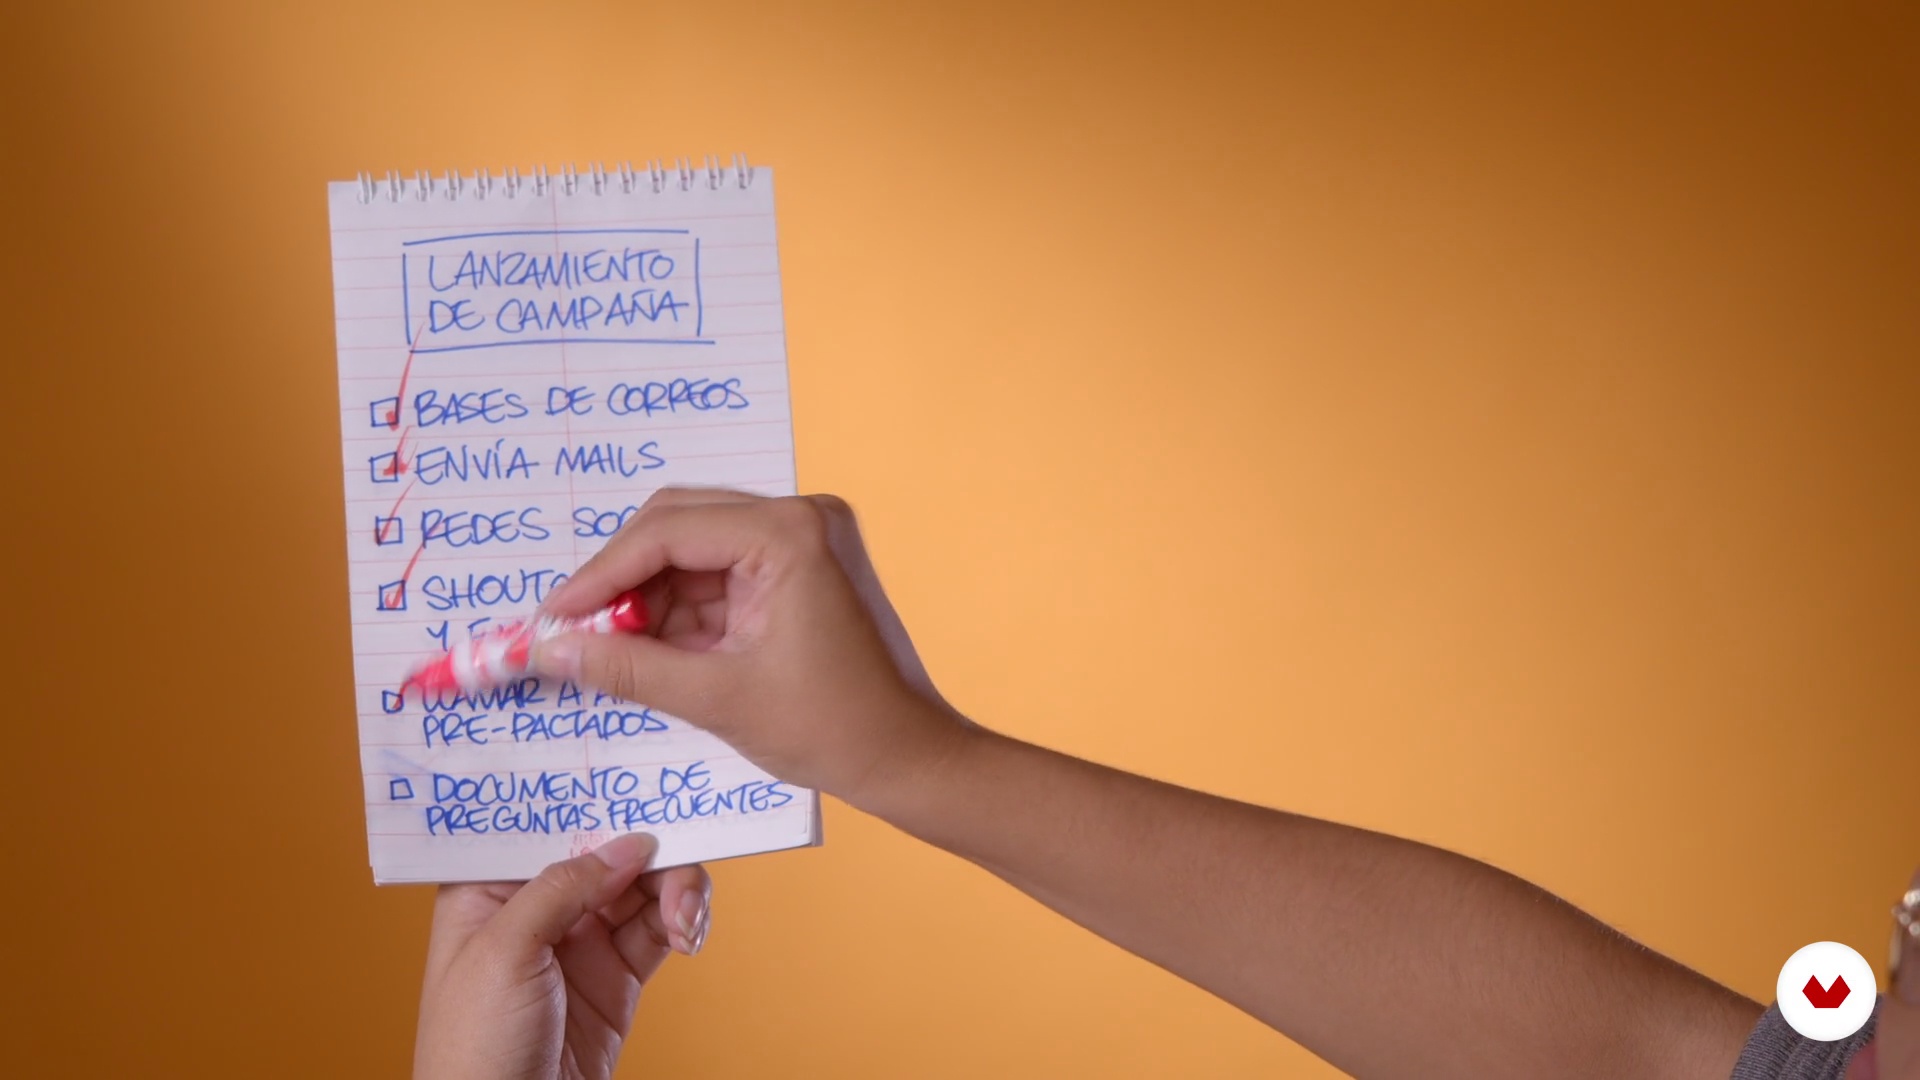 LANZAMIENTO
DE CAMPAÑA
BASES DE CORREOS
ENVÍA MAILS
REDES
Y
LLAMAR A
PRE-PACTADOS
DOCUMENTO DE
PREGUNTAS FRECUENTES